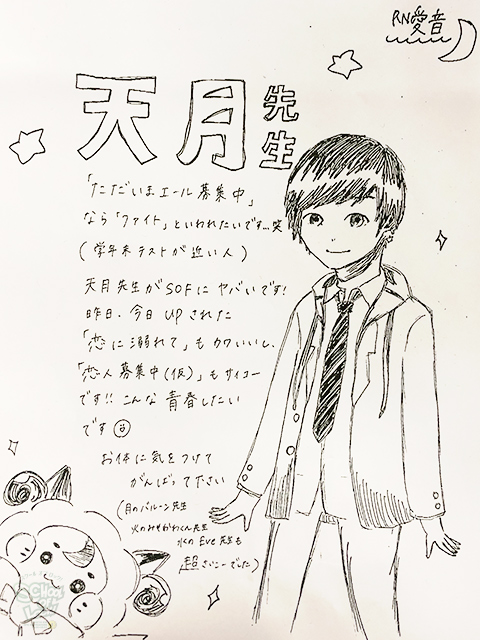 RN愛音
天月先生
「ただいまエール募集中」
なら「ファイト」といわれたいです…笑
(学年末テストが近い人)
天月先生がSOFにヤバいです!
昨日、今日UPされた
「恋に溺れて」もカワいいし、
「恋人募集中(仮)」もサイコー
です!!こんな青春したい
です
お体に気をつけて
がんばって下さい
(月のバルーン先生
火のみやかわくん先生
水のEve先生も
超さいこーでした)
SCHOOL OF LOCK!